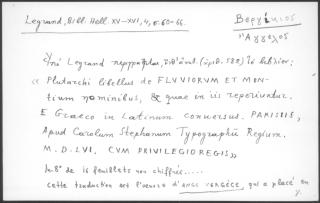 Legrand, Bibl. Hell. XV-XVI, 4, σ. 60-66.
Βεργίκιος
Ἄγγελος
Ὑπὸ Legrand περιγράφεται,
« Plutarchi libellus de FLUVIORUM ET MON-
tium nominibus, & quae in iis reperiuntur.
E Graeco in Latinum conversus. PARISIIS,
Apud Carolum Stephanum Typographũ Regium.
M.D.LVI. CVM PRIVILEGIO REGIS »
In 8° de 16 feuillets non chiffrés.....
cette traduction est l'œuvre d'ANGE VERGÈCE, qui a placé en